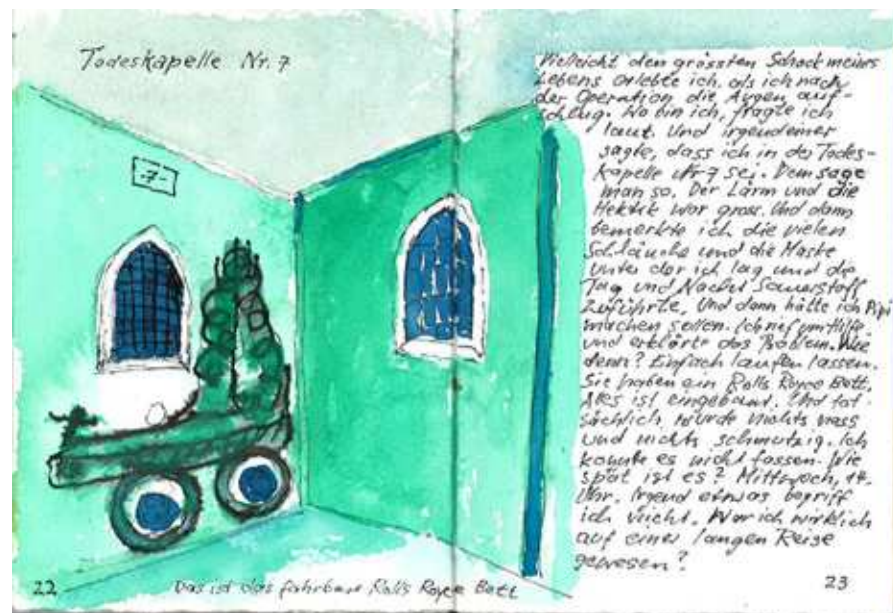 Todeskapelle Nr. 7
-7-
Vielleicht den grössten Schock meines
Lebens erlebte ich, als ich nach
der Operation die Augen auf-
schlug. Wo bin ich, fragte ich
laut. Und irgendeiner
sagte, dass ich in der Todes-
kapelle Nr 7 sei. Dem sage
man so. Der Lärm und die
Hektik war gross. Und dann
bemerkte ich die vielen
Schläuche und die Maske
unter der ich lag und die
Tag und Nacht Sauerstoff
zuführte. Und dann hätte ich Pipi
machen sollen. Ich rief um Hilfe
und erklärte das Problem. Wie
denn? Einfach laufen lassen.
Sie haben ein Rolls Royce Bett.
Alles ist eingebaut. Und tat-
sächlich wurde nichts nass
und nichts schmutzig. Ich
konnte es nicht fassen. Wie
spät ist es? Mittwoch, 14.
Uhr. Irgend etwas begriff
ich nicht. War ich wirklich
auf einer langen Reise
gewesen?
22
Das ist das fahrbare Rolls Royce Bett
23